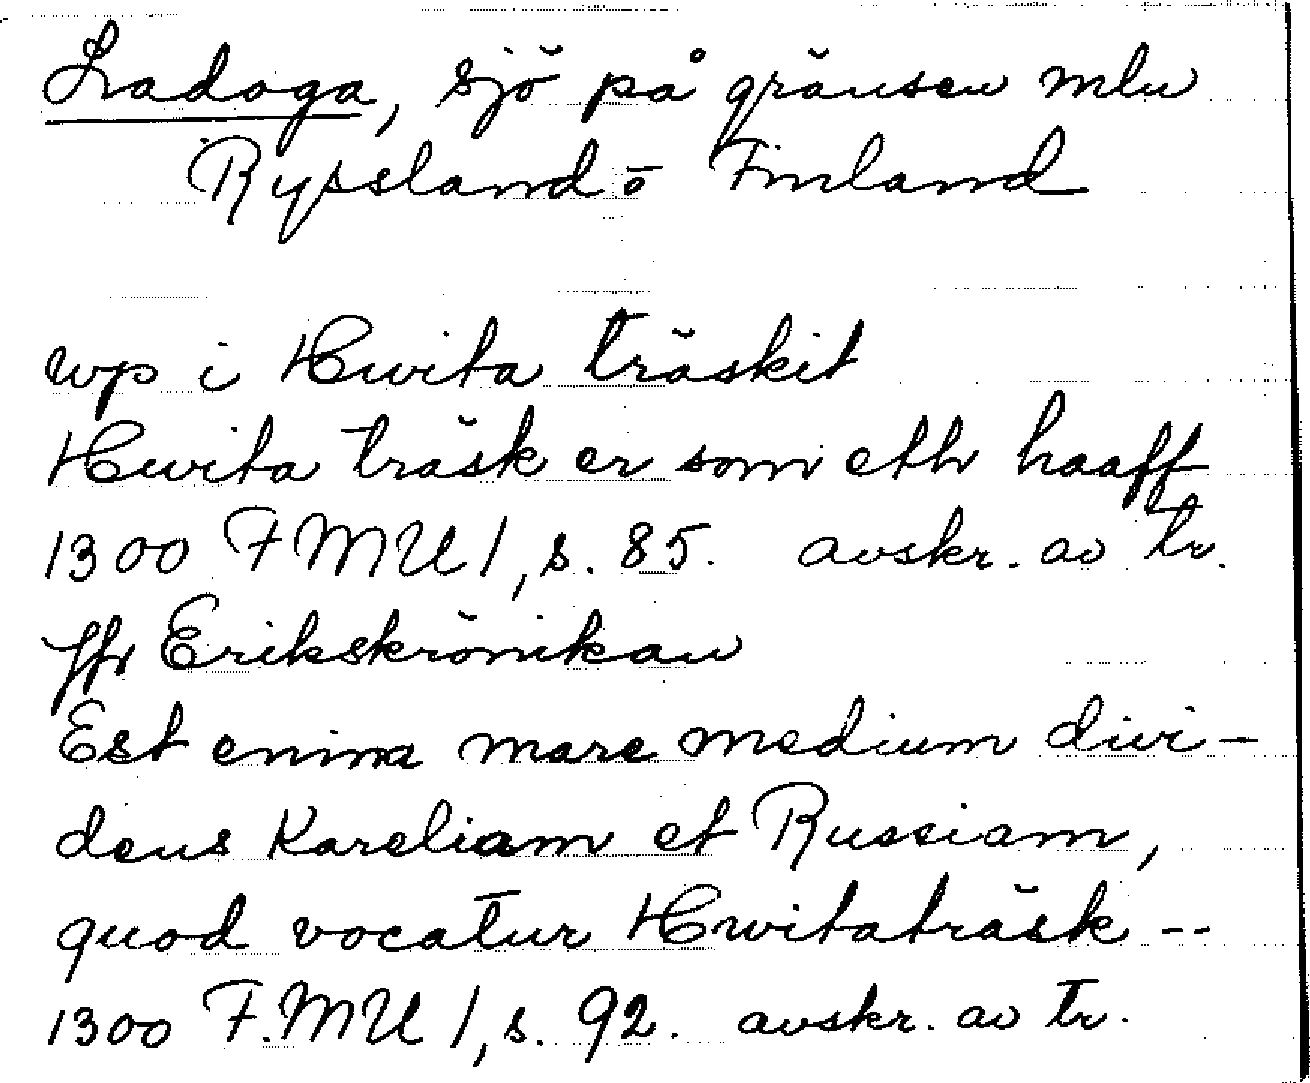 Ladoga, sjö på gränsen mln
Ryssland o Finland
wp i Hwita träskit
Hwita träsk er som eth haaff
1300 FMU 1, s. 85. avskr. av tr.
jfr Erikskrönikan
Est enim mare medium divi-
dens Kareliam et Russiam,
quod vocatur Hwitaträsk --
1300 F.MU 1, s. 92. avskr. av tr.